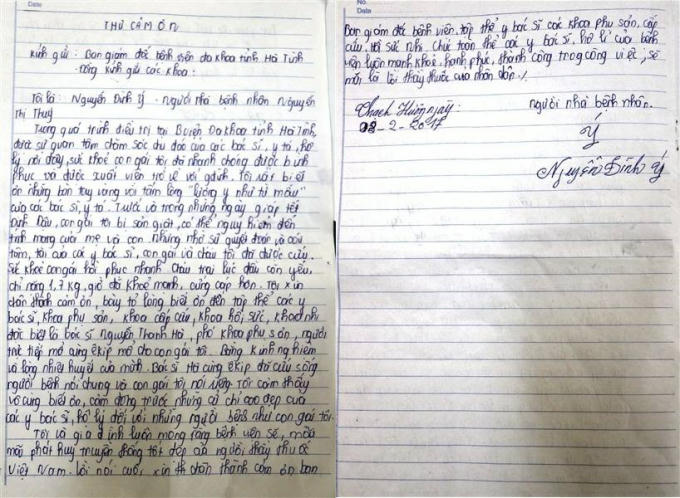 Date
THƯ CẢM ƠN
Kính gửi: Ban giám đốc bệnh viện đa khoa tỉnh Hà Tĩnh
Đồng kính gửi các khoa:
Tôi là: Nguyễn Đình Ý - Người nhà bệnh nhân Nguyễn
Thị Thuỷ
Trong quá trình điều trị tại B.viện Đa khoa tỉnh Hà Tĩnh,
được sự quan tâm chăm sóc chu đáo của các bác sĩ, y tá, hộ
lý nơi đây, sức khoẻ con gái tôi đã nhanh chóng được bình
phục và được xuất viện trở về với gđình. Tôi rất biết
ơn những bàn tay vàng với tấm lòng "lương y như từ mẫu"
của các bác sĩ, y tá. Trước và trong những ngày giáp tết
Đinh Dậu, con gái tôi bị sản giật, có thể nguy hiểm đến
tính mạng của mẹ và con nhưng nhờ sự quyết đoán và cứu
tâm, tài của các y bác sĩ, con gái và cháu tôi đã được cứu.
Sức khoẻ con gái hồi phục nhanh. Cháu trai lúc đầu còn yếu,
chỉ nặng 1,7 kg, giờ đã khoẻ mạnh, cứng cáp hơn. Tôi xin
chân thành cảm ơn, bày tỏ lòng biết ơn đến tập thể các y
bác sĩ, khoa phụ sản, khoa cấp cứu, khoa hồi sức, khoa nhi
đặc biệt là bác sĩ Nguyễn Thanh Hà, phó khoa phụ sản, người
trực tiếp mổ cùng êkip mổ cho con gái tôi. Bằng kinh nghiệm
và lòng nhiệt huyết của mình. Bác sĩ Hà cùng êkip đã cứu sống
người bệnh nói chung và con gái tôi nói riêng. Tôi cảm thấy
vô cùng biết ơn, cảm động trước những cử chỉ cao đẹp của
các y bác sĩ, hộ lý đối với những người bệnh như con gái tôi.
Tôi và gia đình luôn mong rằng bệnh viện sẽ, mãi
mãi phát huy truyền thống tốt đẹp của người thầy thuốc
Việt Nam. Lời nói cuối, xin th chân thành cảm ơn ban
No.
Date
Ban giám đốc bệnh viện, tập thể y bác sĩ các khoa phụ sản, cấp
cứu, hồi sức, nhi. Chúc toàn thể các y bác sĩ, hộ lí của bệnh
viện luôn mạnh khoẻ, hạnh phúc, thành công trong công việc, sẽ
mãi là lời thầy thuốc của nhân dân./.
Thạch Hương ngày:
08-2-2017
Người nhà bệnh nhân.
Ý
Nguyễn Đình Ý